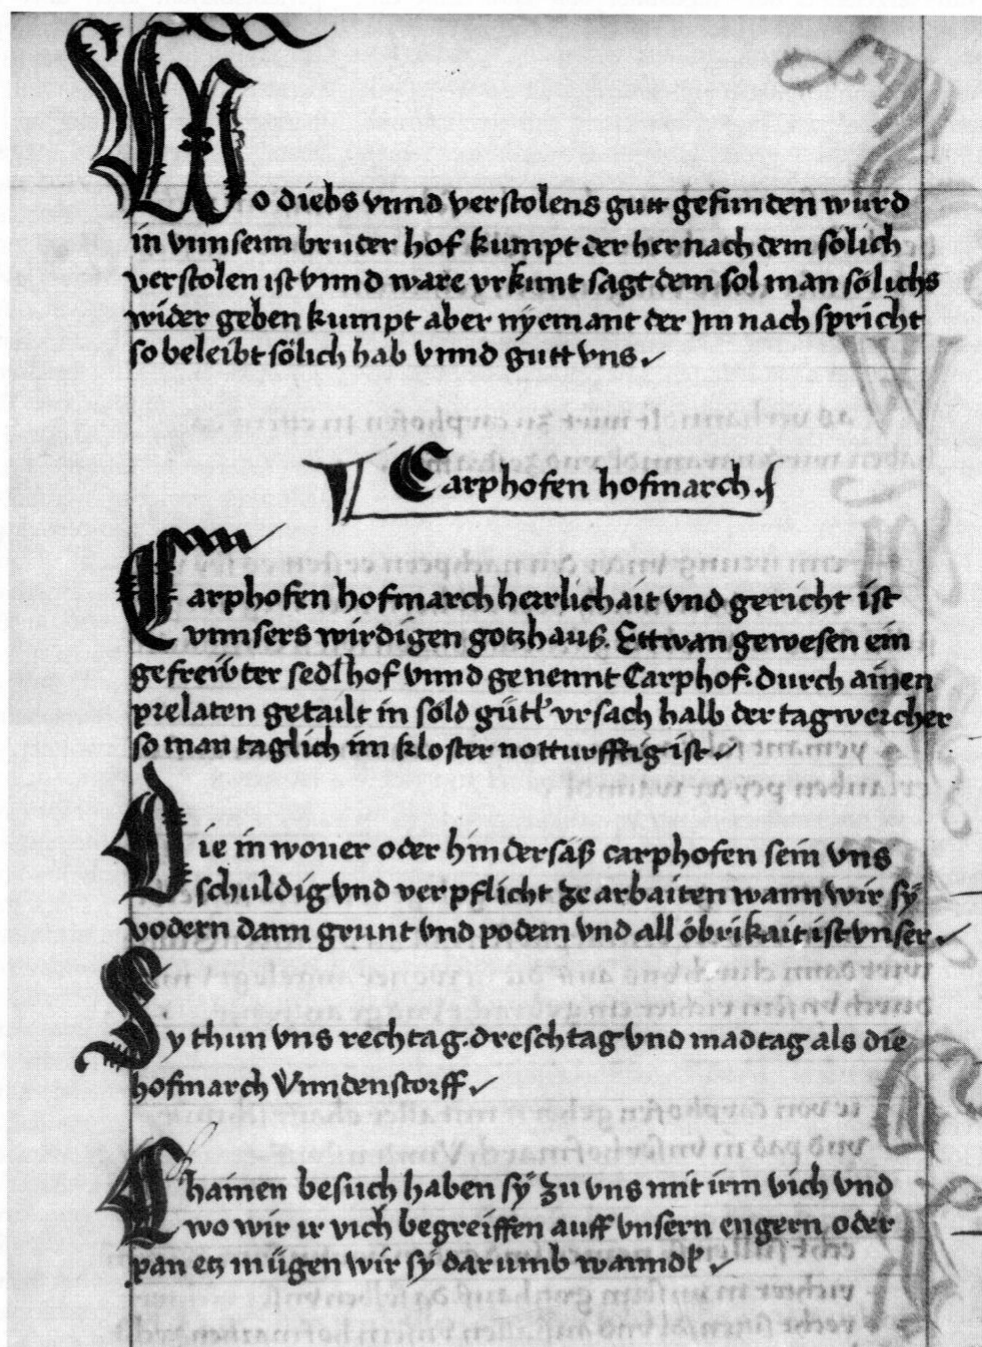 Wo diebs vnnd verstolens gutt gefunden wurd
in vnnserm bruder hof kumpt der her nach dem sölich
verstolen ist vnnd ware vrkunt sagt dem sol man sölichs
wider geben kumpt aber nÿemant der Im nach spricht
so beleibt sölich hab vnnd gutt vns
Carphofen hofmarch
Carphofen hofmarch herrlichait vnd gericht ist
vnnsers wirdigen gotzhauß. Ettwan gewesen ein
gefreÿter sedlhof vnnd genennt Carphof. durch ainen
prelaten getailt in söld gütl vrsach halb der tagwercher
so man taglich im kloster notturfftig ist
Die inwoner oder hindersäß carphofen sein vns
schuldig vnd verpflicht ze arbaiten wann wir sÿ
vodern dann grunt vnd podem vnd all öbrikait ist vnser
Sy thun vns rechtag. dreschtag vnd madtag als die
hofmarch Vnndenstorff
Chainen besuch haben sÿ zu vns mit irm vich vnd
wo wir ir vich begreiffen auff vnsern engern oder
panetz mügen wir sÿ darumb wanndl